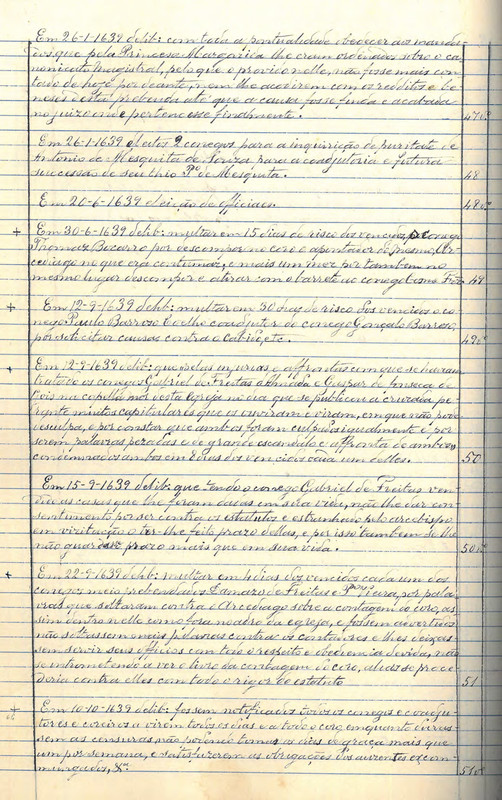 Em 26-1-1639 delib: com toda a pontualidade obedecer aos manda-
dos que pela Princesa Margarida lhe eram ordenados sobre o ca-
nonicato Magistral, pelo que o provido nelle, não fosse mais con-
tado de hoje por deante, nem lhe acodirem com os redditos e be-
neses d'esta prebenda até que a causa fosse finda e acabada
no juizo onde pertencesse finalmente. 47v.
Em 26-1-1639 eleitos 2 conegos para a inquirição de puritate de
Antonio de Mesquita de Souza para a coadjutoria e futura
successão de seu thio Pº de Mesquita. 48
Em 20-6-1639 eleição de officiaes. 48v.
+ Em 30-6-1639 delib: multar em 15 dias de risco dos vencidos, o conego
Thomaz Bocarro por descompor no coro o apontador do mesmo, Ar-
cediago no que era contumaz, e mais um mez por tambem no
mesmo lugar descompor e atirar com o barrete ao conego 49
+ Em 12-9-1639 delib: multar em 30 dias de risco dos vencidos o co-
nego Paulo Barroso Coelho coadjutor do conego Gonçalo Barroso,
por solicitar causas contra o Cabido, etc. 49v.
+ Em 12-9-1639 delib: que pelas injurias e affrontas com que se haviam
tratado os conegos Gabriel de Freitas e Gaspar da Fonseca de
Gois na capella mór desta Egreja no dia que se publicou a cruzada pe-
rante muitos capitulares que os ouviram e viram, em que não pode
desculpa, e por constar que ambos foram culpados igualmente e por
serem palavras pezadas e de grande escandalo e affronta de ambos
condemnados ambos em dos vencidos cada um delles. 50
Em 15-9-1639 delib: que tendo o conego Gabriel de Freitas ven-
dido as casas que lhe foram dadas em sua vida, não lhe dar con-
sentimento por ser contra os estatutos e estranhado pelo arcebispo
em visitação o ter-lhe feito prazo dellas, e por isso tambem se lhe
não guardasse prazo mais que em sua vida. 50v.
+ Em 22-9-1639 delib: multar em 4 dias dos vencidos cada um dos
conegos meio prebendados Lanaro de Freitas e Vieira, por pala-
vras que soltaram contra o Arcediago sobre a contagem do coro, as-
sim dentro nelle como fora no adro da egreja, e fossem advertidos
não soltassem mais palavras contra os contadores e lhes deixas-
sem servir seus officios com todo o respeito e obediencia devida, não
se entromettendo a ver o livro da contagem do coro, alias se proce-
deria contra elles com todo o rigor do estatuto 51
+ Em 10-10-1639 delib: fossem notificados todos os conegos e coadju-
tores e coreiros a virem todos os dias e a todo o coro enquanto duras-
sem as censuras, não podendo tomar a dies de graça mais que
um por semana, e satisfizerem as obrigações dos auzentes excom-
mungados, &ª. 51v.